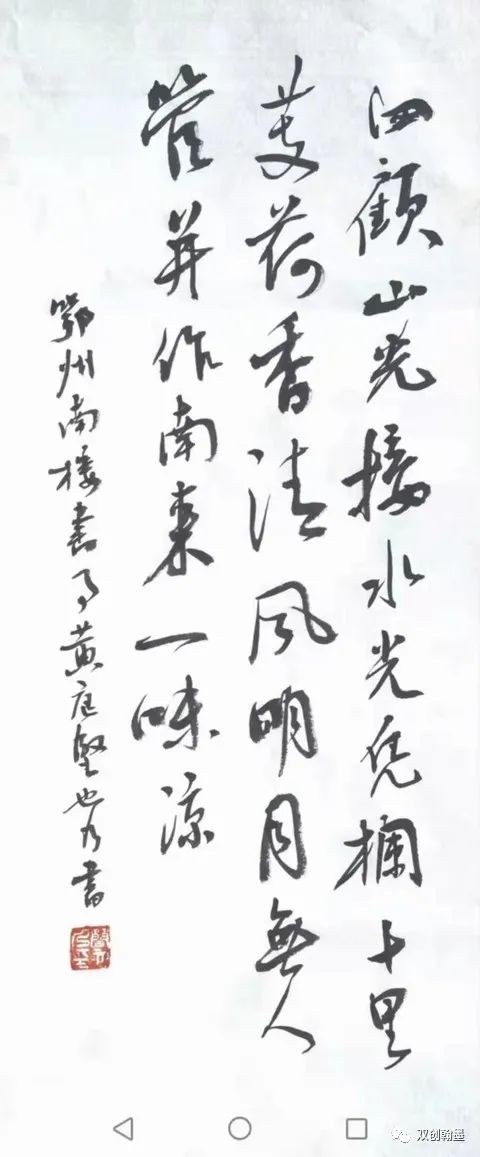 四顧山光接水光凭欄十里
芰荷香清風明月無人
管并作南来一味凉
鄂州南楼書事黄庭堅也乃書
双创翰墨